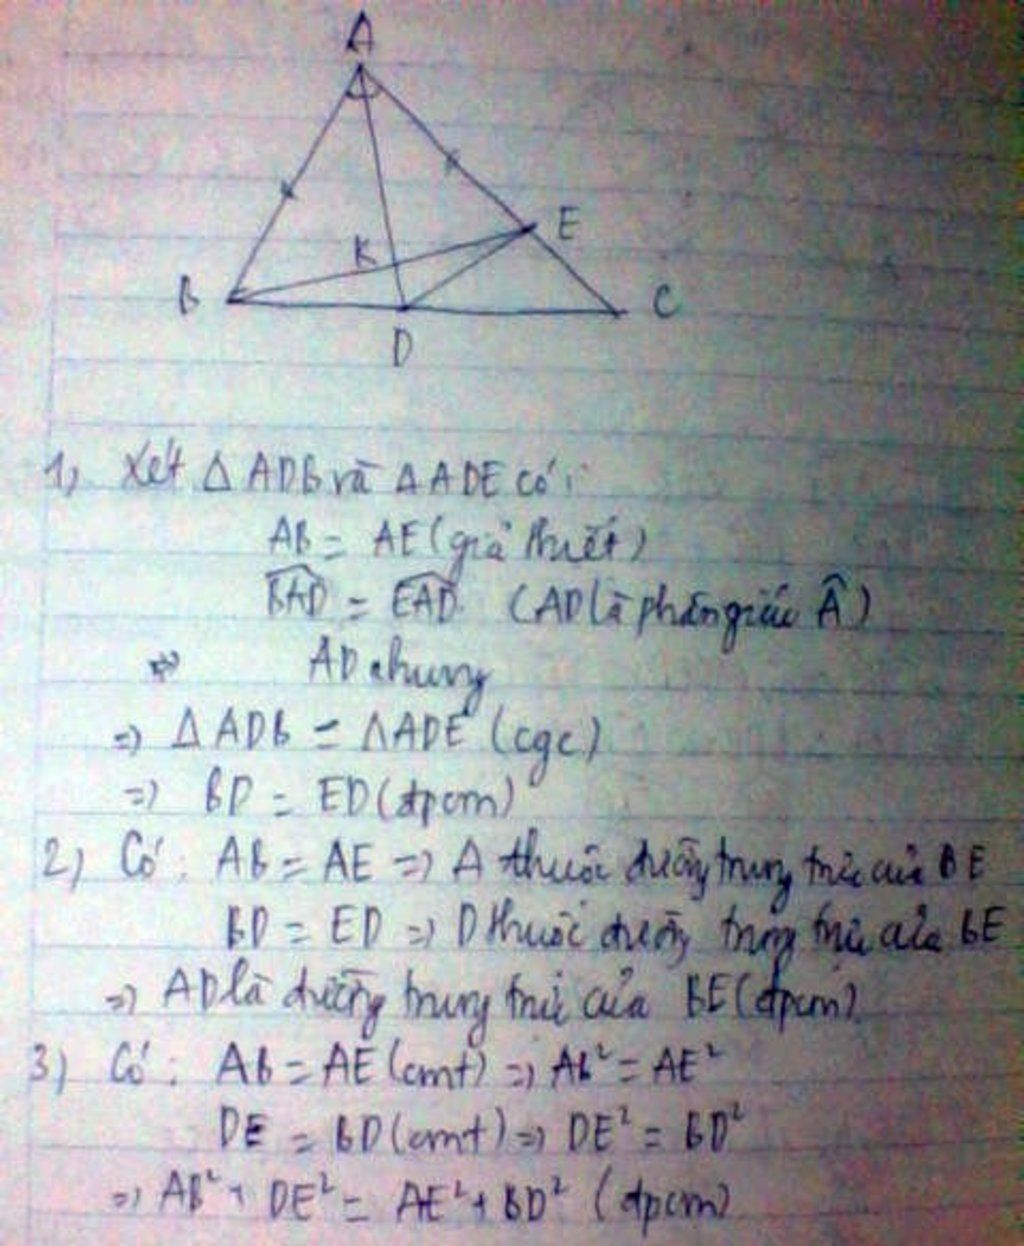 A
E
K
B
C
D
1, Xét △ ADB và △ ADE có:
AB = AE (giả thiết)
BAD = EAD (AD là phân giác Â)
AD chung
=> △ ADB = △ ADE (cgc)
=> BD = ED (đpcm)
2) Có: AB = AE => A thuộc đường trung trực của BE
BD = ED => D thuộc đường trung trực của BE
=> AD là đường trung trực của BE (đpcm)
3) Có: AB = AE (cmt) => AB² = AE²
DE = BD (cmt) => DE² = BD²
=> AB² + DE² = AE² + BD² (đpcm)